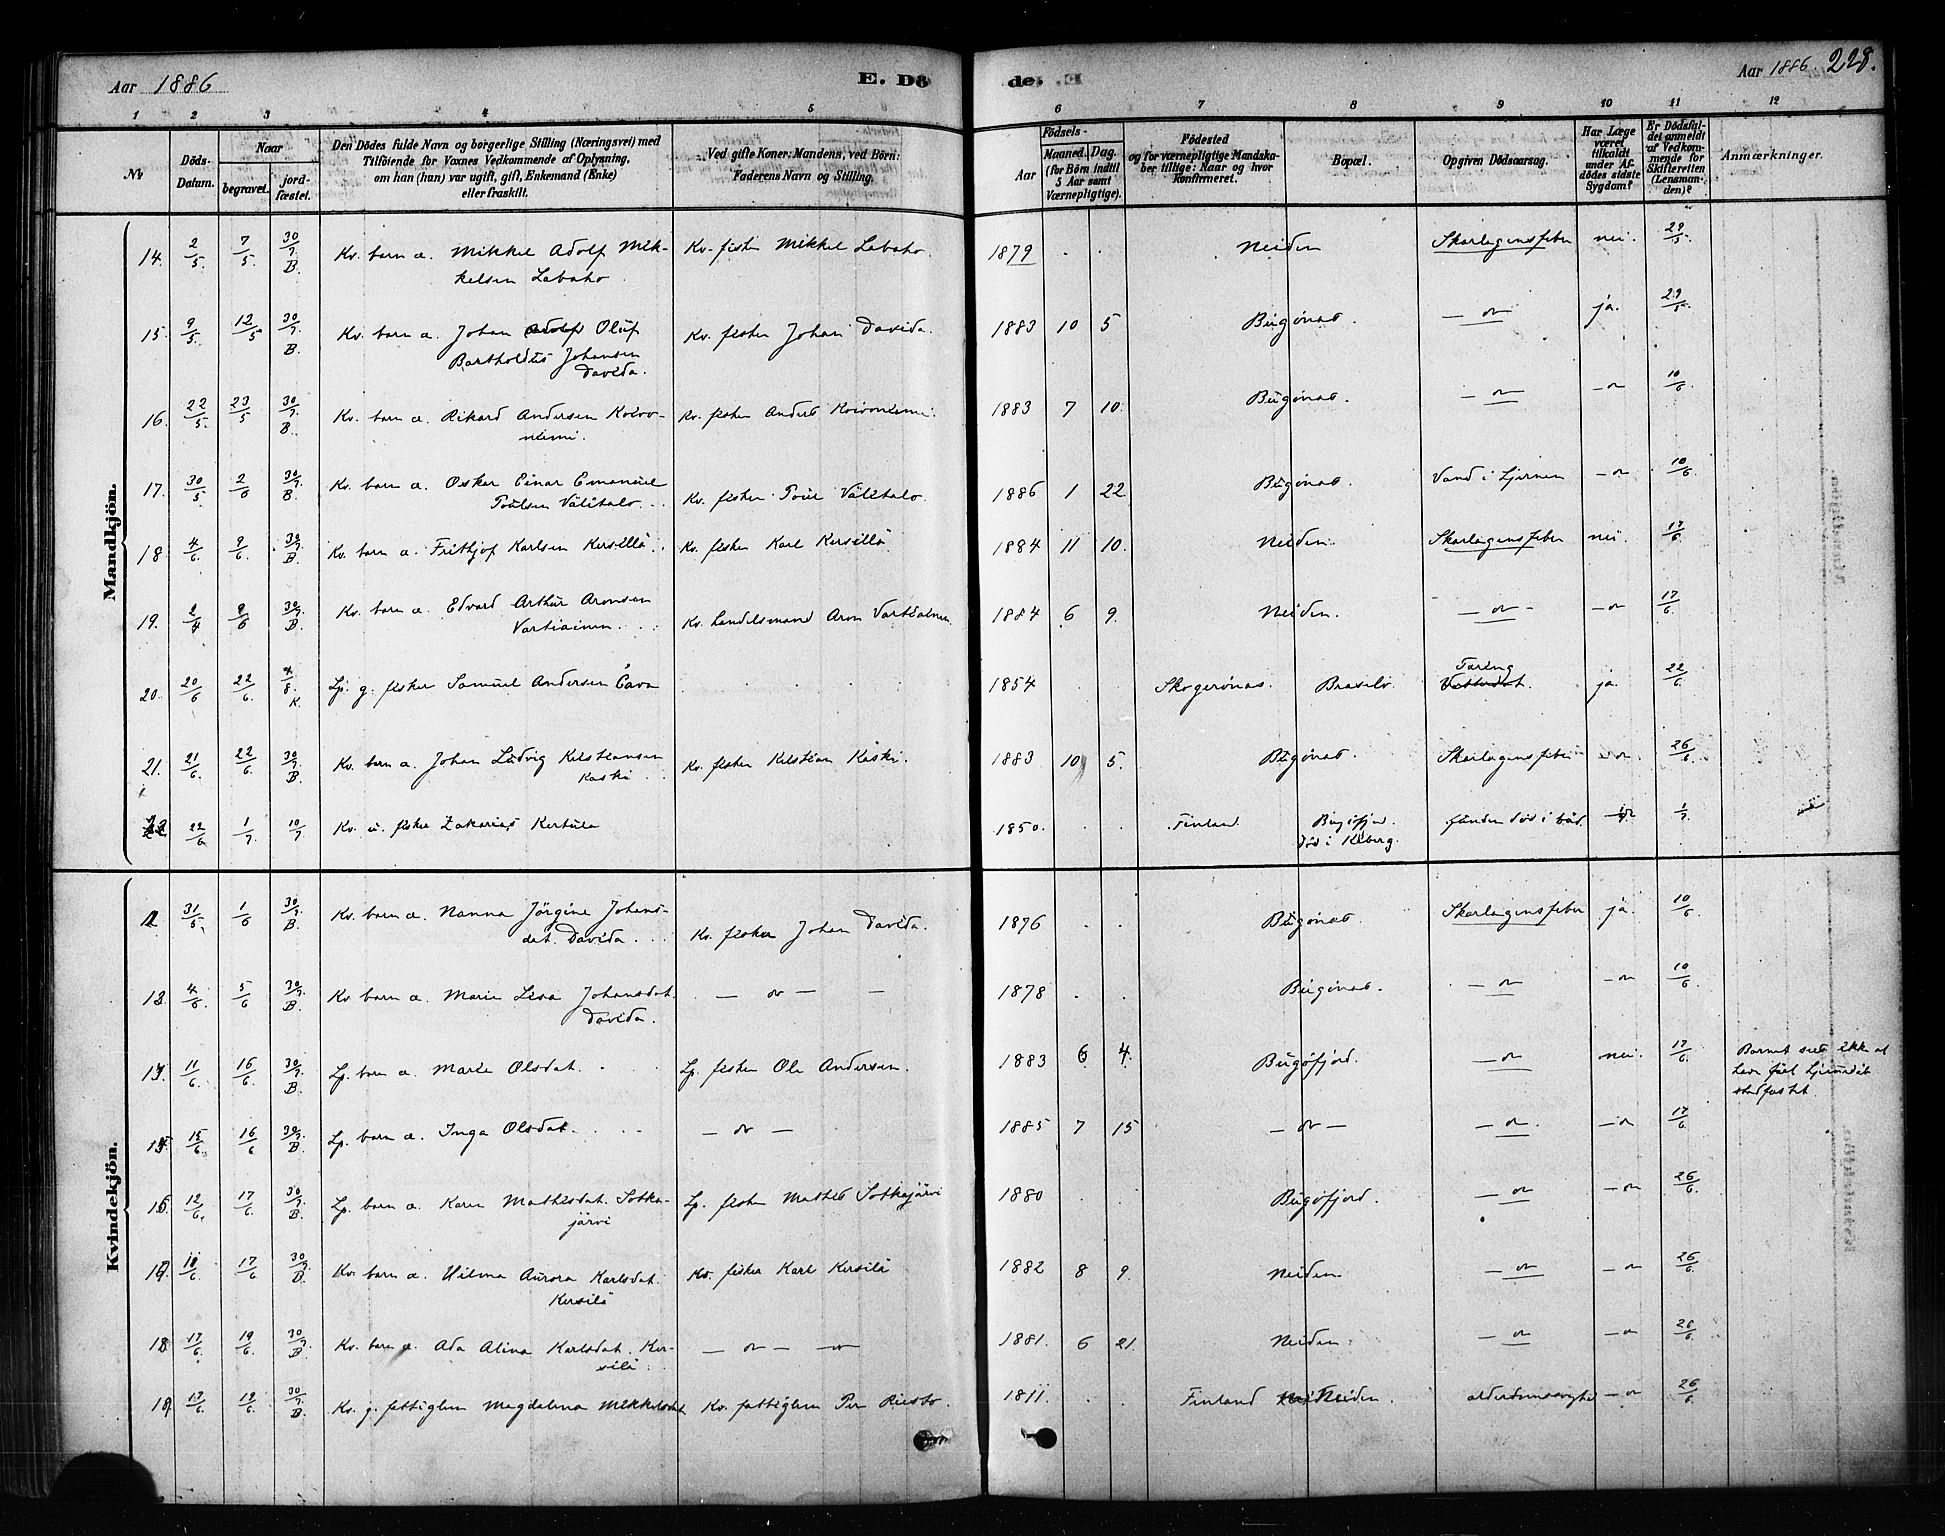 Aar 1886
E. Dö
de.
Aar 1886.
228.
1 2 3 4 5 6 7 8 9 10 11 12
No
Döds-Datum.
Naar
begravet.
jord-fæstet.
Den Dödes fulde Navn og borgerlige Stilling (Næringsvei) med
Tilföiende for Voxnes Vedkommende af Oplysning,
om han (hun) var ugift, gift, Enkemand (Enke)
eller fraskilt.
Ved gifte Koner: Mandens, ved Börn:
Faderens Navn og Stilling.
Födsels-
Aar
Maaned. Dag.
(for Börn indtil
5 Aar samt
Værnepligtige).
Födested
og for værnepligtige Mandska-
ber tillige: Naar og hvor
Konfirmeret.
Bopæl.
Opgiven Dödsaarsag.
Har Læge
været
tilkaldt
under Af-
dödes sidste
Sygdom?
Er Dödsfal-
det anmeldt
af Vedkom-
mende for
Skifteretten
(Lensman-
den)?
Anmærkninger.
Mandkjön.
14. 2/5. 7/5 30/7. B. Kv. barn a. Mikkel Adolf Mik- Kv. fisker Mikkel Labaho. 1879 . . Neiden Skarlagensfeber nei. 29/5.
kelsen Labaho
15. 9/5. 12/5 30/7. B. Kv. barn a. Johan Adolf Oluf Kv. fisker Johan Davida. 1883 10 5 Bugönæs. — " — ja. 29/5
Bartholdus Johansen
Davida.
16. 22/5. 23/5 30/7. B. Kv. barn a. Rikard Andersen Koivo- Kv. fisker Anders Koivoniemi. 1883 7 10. Bugönæs — " — — " 10/6
niemi.
17. 30/5 2/6 30/7. B. Kv. barn a. Oskar Einar Emanuel 1886 1 22 Bugönæs. Vand i Hjernen — " 10/6.
Poulsen Välitalo. . . Kv. fisker Poul Välitalo.
18. 4/6. 9/6. 30/7. B. Kv. barn a. Frithjof Karlsen Kersillä. Kv. fisker Karl Kersillä 1884 11 10. Neiden. Skarlagensfeber nei. 17/6
19. 9/6 30/7. B. Kv. barn a. Edvard Arthur Aronsen 1884 6 9. Neiden. — " — — " 17/6.
Vartiainen. . . . Kv. Handelsmand Aron Vartiainen
20. 20/6 22/6. 4/8. K. Lp. g. fisker Samuel Andersen 1854 . . Skogerönæs. ja. 22/6.
21. 21/6. 22/6. 30/7. B. Kv. barn a. Johan Ludvig Kristiansen Kv. fisker Kristian Kaski. 1883 10 5. Bugönæs Skarlagensfeber — " 26/6
Kaski . . .
22 22/6 1/7. 10/7 Kv. u. fisker Zakarias Kertula 1850. . . Finland Bugöfjord. funden död i båd. 1/7.
död i Kiberg.
Kvindekjön.
12 31/5. 1/6 30/7. B. Kv. barn a. Nanna Jörgine Johans- 1876 . . Bugönæs Skarlagensfeber ja. 10/6.
dat. Davida . . . Kv. fisker Johan Davida.
13. 4/6. 5/6 30/7. B. Kv. barn a. Marie Lisa Johansdat. — " — — 1878 . . Bugönæs. — " — — " 10/6
Davida.
14. 11/6 16/6 30/7. B. Lp. barn a. Marie Olsdat. Lp. fisker Ole Andersen. 1883 6 4. Bugöfjord. — " nei. 17/6. Barnet sees ikke at
have faaet Hjemmedåb
stadfæstet.
15. 15/6. 16/6 30/7. B Lp. barn a. Inga Olsdat. . . . — " — 1885 7 15 — " — — " —. — " 17/6.
16. 12/6. 17/6. 30/7. B. Lp. barn a. Karen Mathisdat. Sotka- Lp. fisker Mathis Sotkajärvi 1880 . . Bugöfjord. — " — — " 26/6.
järvi
17. 10/6. 17/6. 30/7. B. Kv. barn a. Hilma Aurora Karlsdat. Kv. fisker Karl Kersilä 1882 8 9. Neiden — " — — " 26/6.
Kersilä
18. 17/6. 19/6. 30/7. B. Kv. barn a. Ada Alina Karlsdat. Ker- — " — " 1881. 6 21. Neiden. — " — — " 26/6.
silä . .
19. 17/6. 19/6. 30/7. B. Kv. g. fattiglem Magdalena Mikkelsdat Kv. fattiglem Per 1811. . . Finland Neiden. alderdomssvaghed — " 26/6.